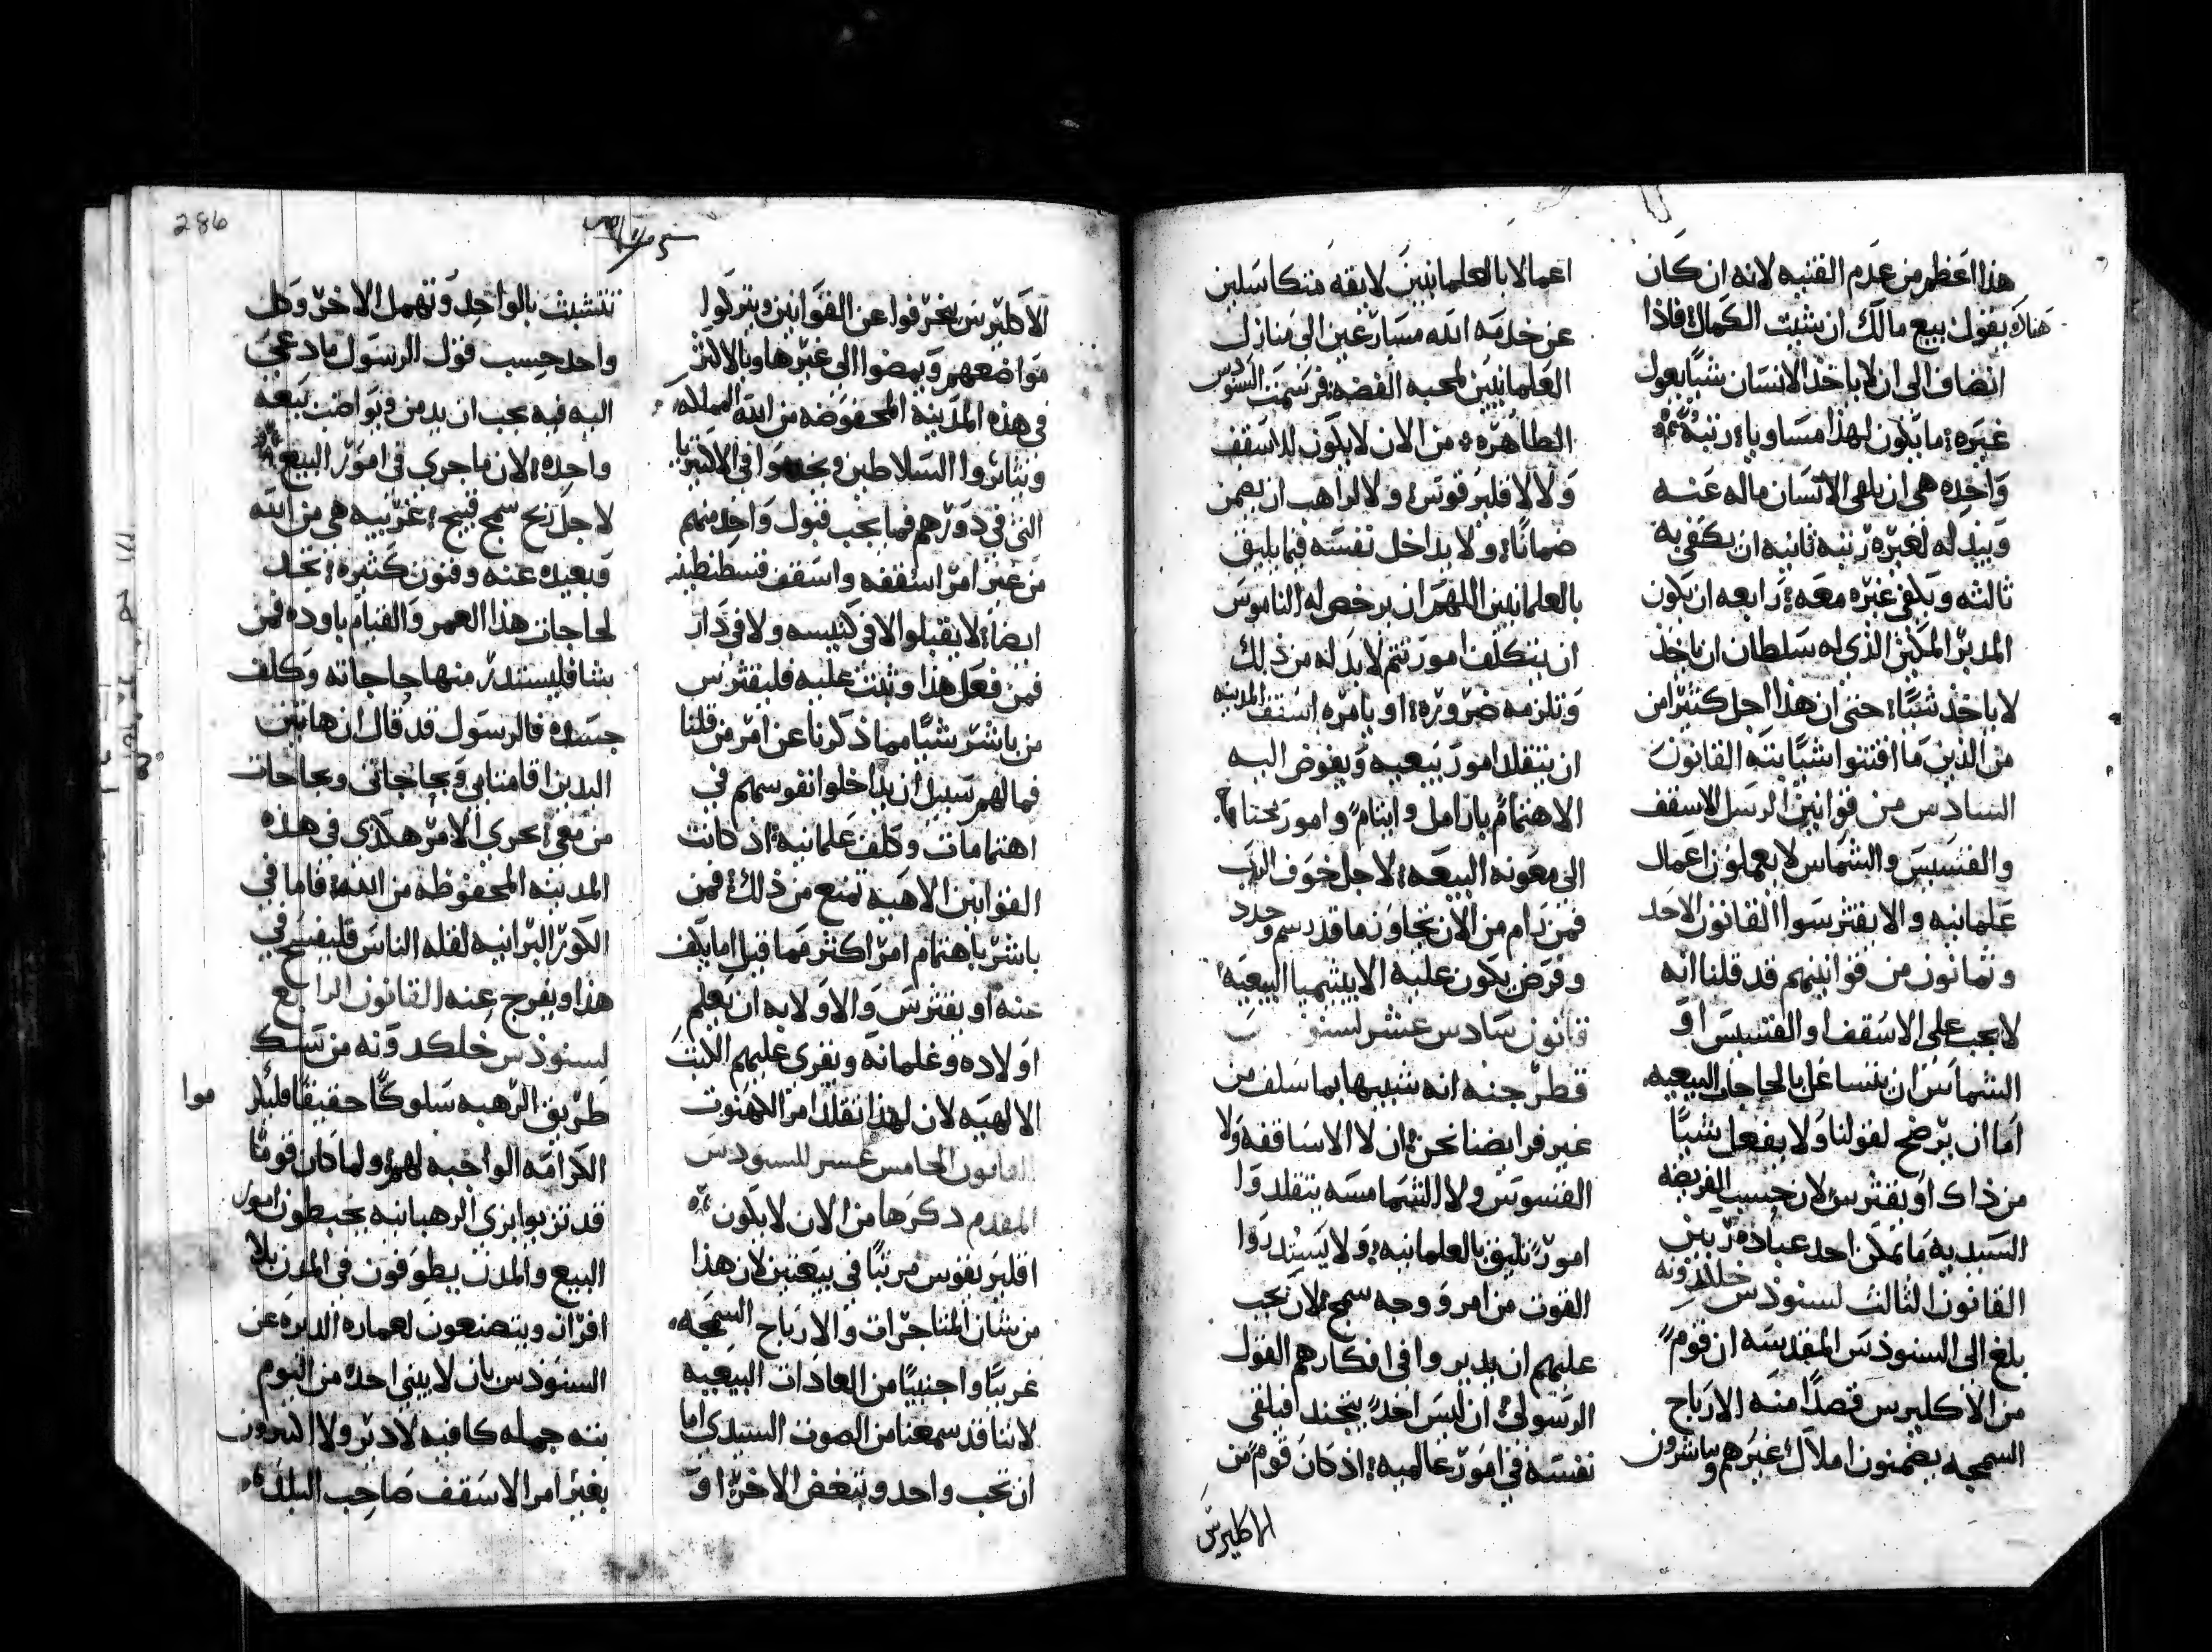 هذا اعظم من عدم القنيه لانه ان كان
هناك يقول بيع مالك ان شيت الكمال فاذا
انضاف الى ان لا ياخذ الانسان شيًا يعول
غيره ما يكون لهذا مساويا رتبه
واحده هى ان يلقى الانسان ماله عنه
ويبذله لغيره رتبه ثانيه ان يكفى به
ثالثه ويكفى غيره معه رابعه ان يكون
المدبر المكثر الذى له سلطان ان ياخذ
لا ياخذ شيًا حتى ان هذا اجل كثيرًا من
من الذين ما اقتنوا شيًا بته القانون
السادس من قوانين الرسل الاسقف
والقسيس والشماس لا يعملون اعمال
علمانيه والا يفترسوا القانون الاحد
وثمانون من قوانينهم قد قلنا انه
لا يجب على الاسقف او القسيس او
الشماس ان يتشاغل بالحاجات البيعيه
اما ان يرضح لقولنا ولا يفعل شيًا
من ذاك او يفترس لان حسب الفريضه
السيديه ما يمكن احد عبادة ربين
القانون الثالث لسنودس خلكدونه
بلغ الى السنودس المقدسه ان قوم
من الاكليرس قصدًا منه الارباح
السمجه يضمنون املاك غيرهم ويباشرون
اعمالا بالعلمانيين لايقه متكاسلين
عن خدمه الله مسارعين الى منازل
العلمانيين لمحبه الفضه فرسمت السنودس
الطاهره من الان لا يكون لاسقف
ولا لاقليريقوس ولا لراهب ان يضمن
ضمانًا ولا يداخل نفسه فيما يليق
بالعلمانيين اللهم ان يرخص له الناموس
ان يتكلف امور يتم لا بد له من ذلك
وتلزمه ضروره او يامره اسقف المدينه
ان يتقلد امور بيعيه ويفوض اليه
الاهتمام بارامل وايتام وامور يحتاج
الى معونه البيعه لاجل خوف الرب
فمن رام من الان يتجاوز ما قد رسم وحدد
وفرض يكون عليه الايبيتيميا البيعيه
قانون سادس عشر لسنودس
قطرجنه انه شبيها بما سلف من
غير فرايضنا نحن ان لا الاساقفه ولا
القسوس ولا الشمامسه يتقلدوا
امور تليق بالعلمانيه ولا يستدروا
القوت من امر ووجه سمج لان يجب
عليهم ان يديروا فى افكارهم القول
الرسولى ان ليس احد يتجند فيلقى
نفسه فى امور عالميه اذ كان قوم من
الاكليرس
286
الاكليرس ينحرفوا عن القوانين ويتركوا
مواضعهم ويمضوا الى غيرها وبالاكثر
فى هذه المدينه المحفوضه من الله المملكه
ويثابروا السلاطين ويخدموا فى الاكتيريا
التى فى دورهم فما يجب قبول واحد منهم
من غير امر اسقفه واسقف قسطنطينيه
ايضا لا يقبلوا لا فى كنيسه ولا فى دار
فمن فعل هذا وثبت عليه فليفترس
من باشر شيًا مما ذكرنا عن امر من قلنا
فما لهم سبيل ان يداخلوا نفوسهم فى
اهتمامات وكلف علمانيه اذ كانت
القوانين الاهيه تمنع من ذلك فمن
باشر باهتمام امرًا كثر مما قيل اما يكف
عنه او يفترس والاولا به ان يعلم
اولاده وغلمانه ويقرى عليهم الكتب
الالهيه لان لهذا تقلد امر الكهنوت
القانون الخامس عشر للسنودس
المقدم دكرها من الان لا يكون
اقليريقوس مرتبًا فى بيعتين لان هذا
من شان المتاجرات والارباح السمجه
غريبًا واجنبيًا من العادات البيعيه
لاننا قد سمعنا من الصوت السيدى اما
ان تحب واحد وتبغض الاخر او
تتشبث بالواحد وتهمل الاخر وكل
واحد حسب قول الرسول ما دعى
اليه فيه يجب ان يدمن ويواضب بيعه
واحده لان ما جرى فى امور البيع
لاجل ربح سمج قبيح غريبه هى من الله
وبعيده عنه وفنون كثيره نجد
لحاجات هذا العمر والقيام باوده فمن
يشا فليستدر منها حاجاته وكلف
جسده فالرسول قد قال ان هاتين
اليدين اقامتا بى وبحاجاتى وبحاجات
من معى يجرى الامر هكذى فى هذه
المدينه المحفوظه من الله فاما فى
الكور البرانيه لقله الناس فليفسح فى
هذا ويفرج عنه القانون الرابع
لسنودس خلكدونه من نسك
طريق الرهبه سلوكًا حقيقًا فلينل
الكرامه الواجبه لهم ولما كان قومًا
قد تزيوا بزى الرهبانيه يخبطون امور
البيع والمدن يطوفون فى المدن بلا
افران ويتصنعون لعماره الديره عن
السنودس بان لا يبنى احد من اليوم
بته جمله كافيه لا دير ولا
بغير امر الاسقف صاحب البلد